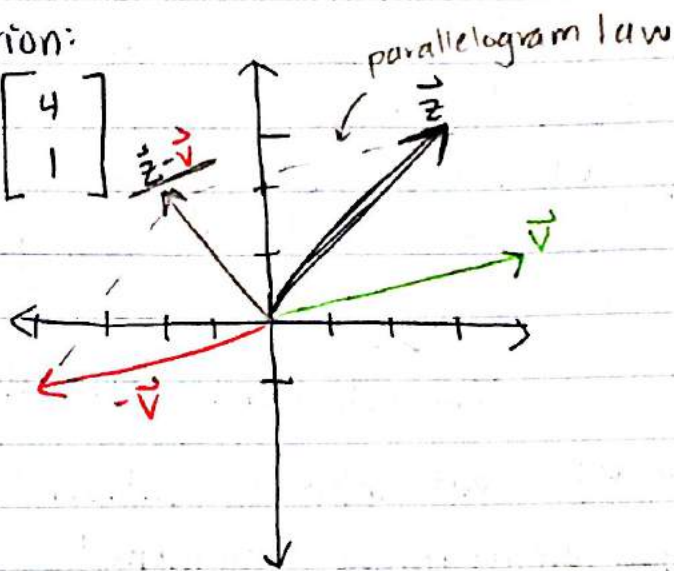 rion:
parallelogram law
[4
1]
z⃗
z⃗-v⃗
v⃗
-v⃗